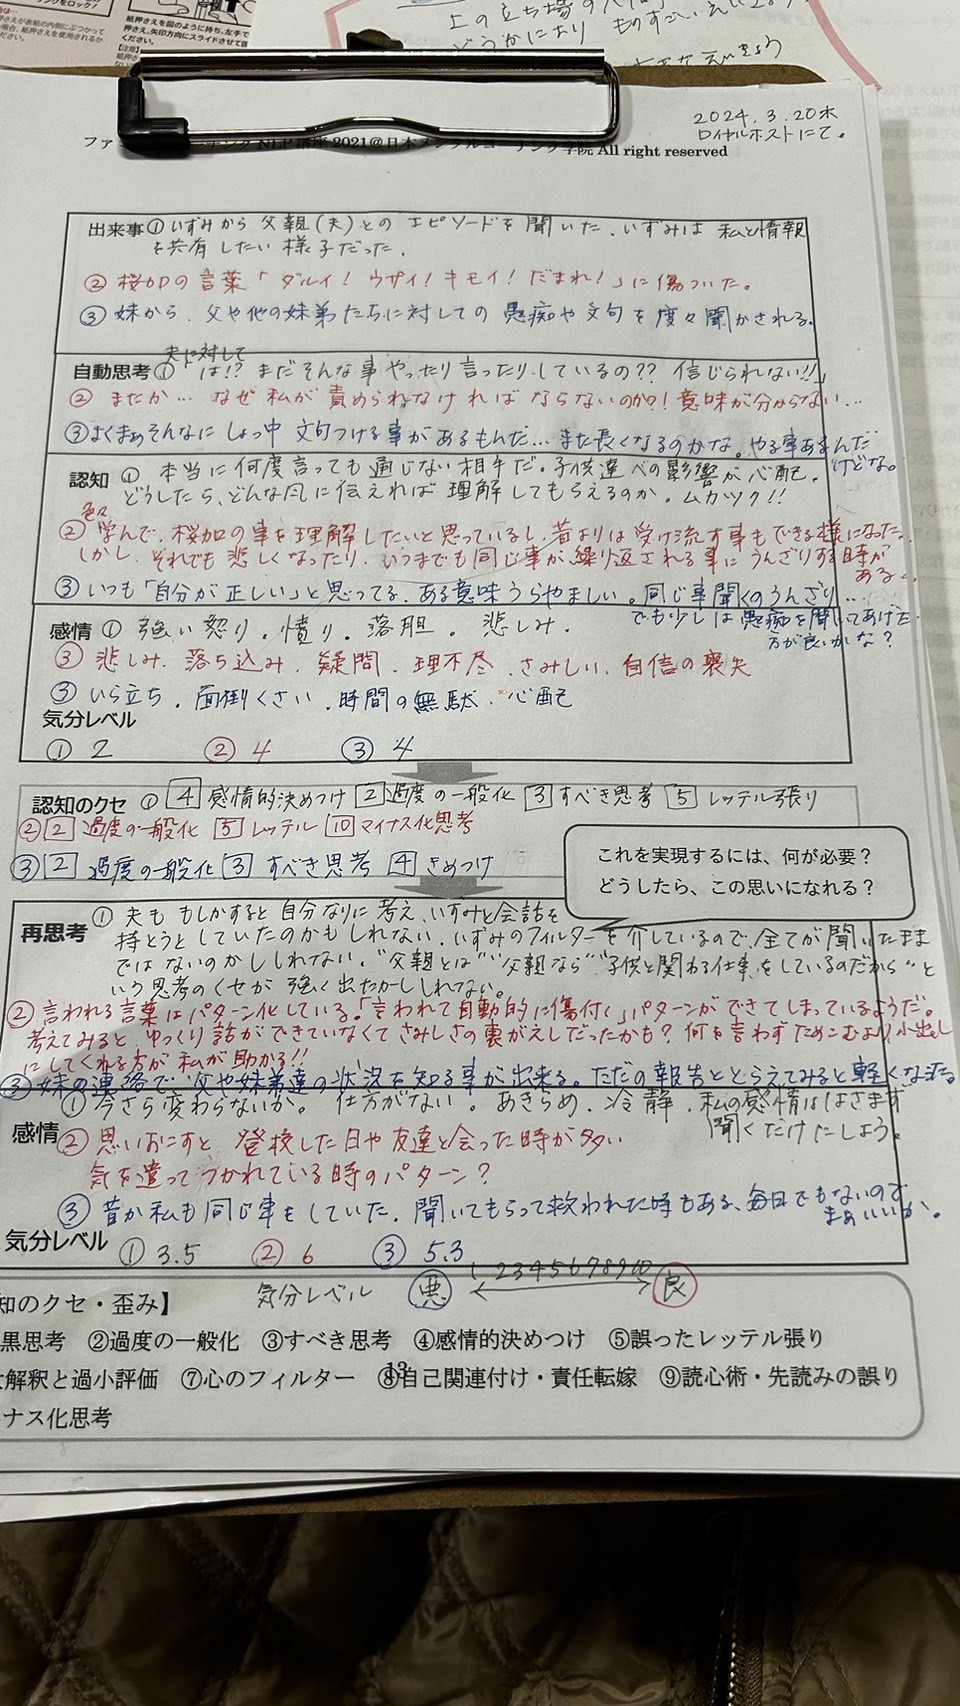 紙押さえが表紙の内側にぶつかって
場合、紙押さえを使用されるか
ださい。
紙押さえを図のように持ち、左手で
押さえ、矢印方向にスライドさせて固
ください。
【注意】
上の立ち場の人
どうかになり ものすごい
2024.3.20水
ロイヤルホストにて。
NLP講座 2021@日本メンタルコーチング学院 All right reserved
出来事 ① いずみから 父親(夫)との エピソードを 聞いた。いずみは 私と情報
を共有したい様子だった。
② 桜加の言葉「ダルイ! ウザイ! キモイ! だまれ!」に傷ついた。
③ 妹から、父や他の妹弟たちに対しての 愚痴や文句を度々聞かされる。
夫に対して
自動思考 ①「は!? まだそんな事やったり言ったりしているの?? 信じられない!!」
② またか… なぜ私が責められなければならないのか?! 意味が分からない…
③ よくまぁそんなに しょっ中 文句つける事があるもんだ… また長くなるのかな。やる事あるんだ
けどな。
認知 ① 本当に何度言っても通じない相手だ。子供達への影響が心配。
どうしたら、どんな風に伝えれば理解してもらえるのか。ムカツク!!
色々
② 学んで、桜加の事を理解したいと思っているし、昔よりは受け流す事もできる様になった。
しかし、それでも悲しくなったり、いつまでも同じ事が繰り返される事にうんざりする時が
ある…
③ いつも「自分が正しい」と思ってる、ある意味うらやましい。同じ事聞くのうんざり…
でも少しは愚痴を聞いてあげた
方が良いかな?
感情 ① 強い怒り。憤り。落胆。悲しみ。
③ 悲しみ、落ち込み、疑問、理不尽、さみしい、自信の喪失
③ いら立ち、面倒くさい、時間の無駄、心配
気分レベル
① 2 ② 4 ③ 4
認知のクセ ① 4 感情的決めつけ 2 過度の一般化 3 すべき思考 5 レッテル張り
② 2 過度の一般化 5 レッテル 10 マイナス化思考
③ 2 過度の一般化 3 すべき思考 4 きめつけ
これを実現するには、何が必要?
どうしたら、この思いになれる?
再思考 ① 夫も もしかすると 自分なりに考え、いずみと会話を
持とうとしていたのかもしれない。いずみのフィルターを介しているので、全てが聞いたまま
ではないのかもしれない。"父親とは" "父親なら" "子供と関わる仕事をしているのだから" と
いう思考のくせが強く出たかもしれない。
② 言われる言葉はパターン化している。「言われて自動的に傷付く」パターンができてしまっているようだ。
考えてみると、ゆっくり話ができていなくてさみしさの裏がえしだったかも? 何を言わずためこむより小出し
にしてくれる方が私が助かる!!
③ 妹の連絡で、父や妹弟達の状況を知る事が出来る。ただの報告ととらえてみると軽くなった
① 今さら変わらないか。仕方がない。あきらめ、冷静、私の感情ははさまず
聞くだけにしよう。
感情 ② 思いおこすと 登校した日や友達と会った時が多い
気を遣ってつかれている時のパターン?
③ 昔か私も同じ事をしていた。聞いてもらって救われた時もある、毎日でもないので
まぁいいか。
気分レベル ① 3.5 ② 6 ③ 5.3
気分レベル 悪 1 2 3 4 5 6 7 8 9 10 良
知のクセ・歪み】
黒思考 ②過度の一般化 ③すべき思考 ④感情的決めつけ ⑤誤ったレッテル張り
大解釈と過小評価 ⑦心のフィルター ⑧自己関連付け・責任転嫁 ⑨読心術・先読みの誤り
ナス化思考
13